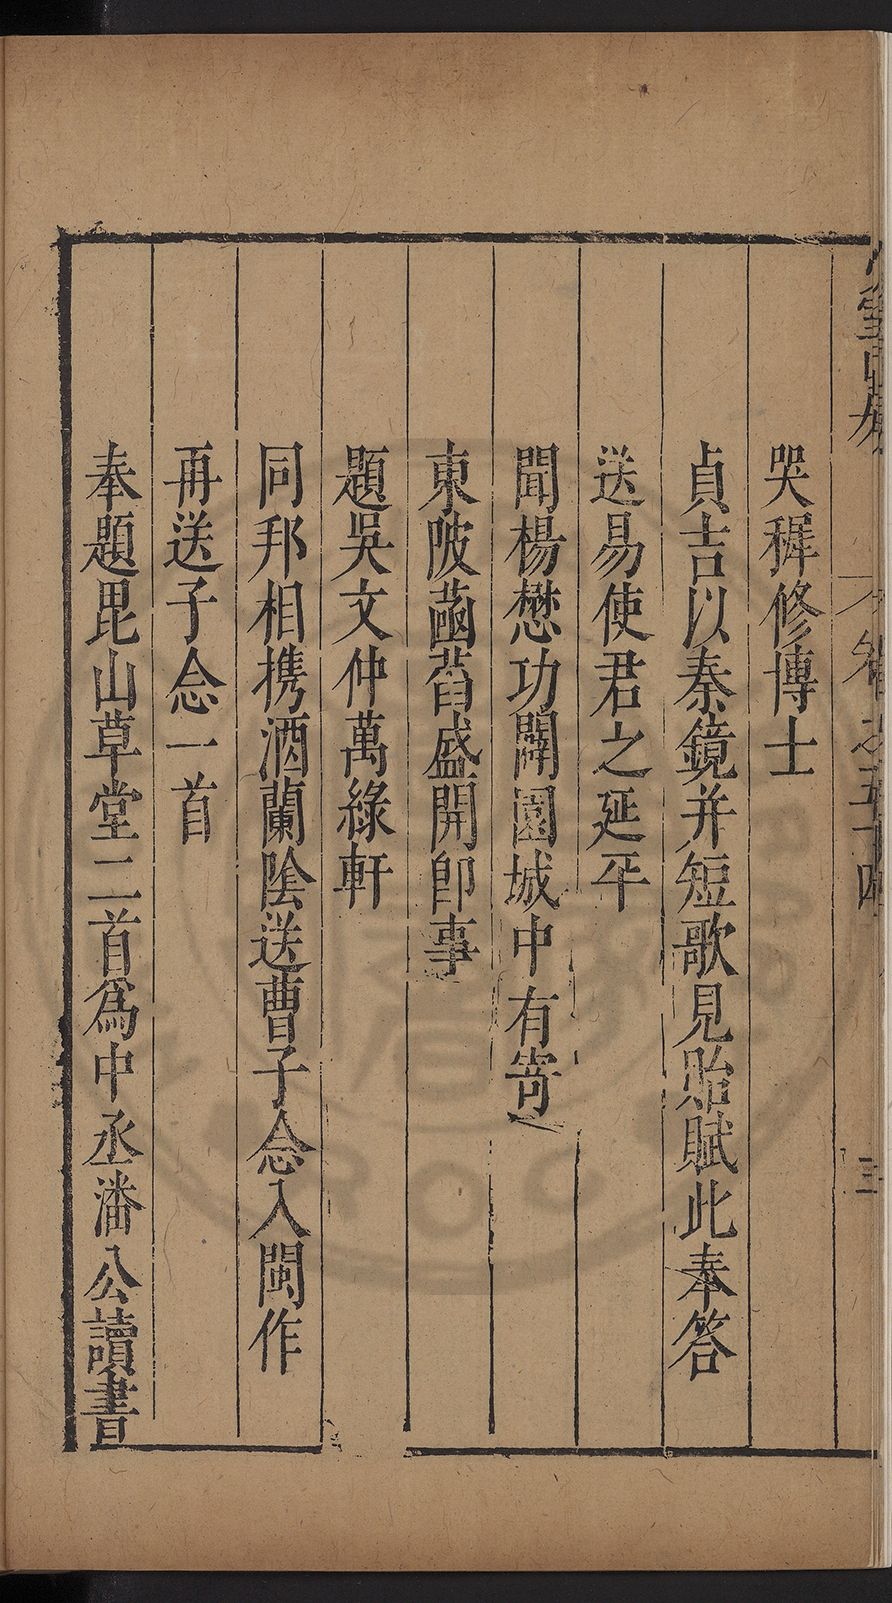 卷之五十四
三
哭穉修博士
貞吉以秦鏡并短歌見貽賦此奉答
送易使君之延平
聞楊懋功闢園城中有寄
東陂菡萏盛開卽事
題吳文仲萬綠軒
同邦相携酒蘭陰送曹子念入閩作
再送子念一首
奉題毘山草堂二首爲中丞潘公讀書